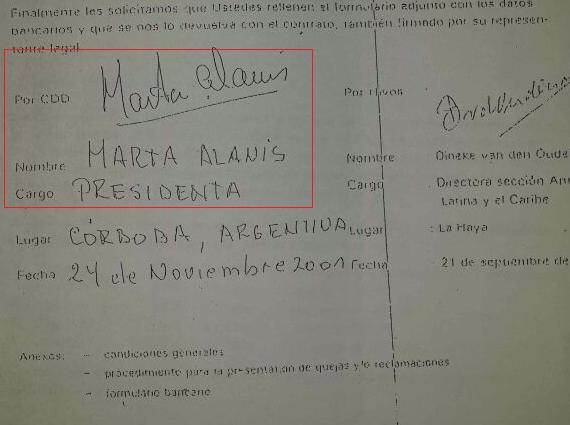 Finalmente les solicitamos que Ustedes rellenen el formulario adjunto con los datos
bancarios y que se nos lo devuelva con el contrato, también firmado por su represen-
tante legal.
Por CDD Marta Alanis
Por Hivos
Nombre MARTA ALANIS
Nombre Dineke van den Oude
Cargo PRESIDENTA
Cargo : Directora sección
Latina y el Caribe
Lugar CÓRDOBA, ARGENTINA
Lugar : La Haya
Fecha 24 de Noviembre 2001
Fecha : 21 de septiembre de
Anexos: - condiciones generales
- procedimiento para la presentación de quejas y/o reclamaciones
- formulario bancario